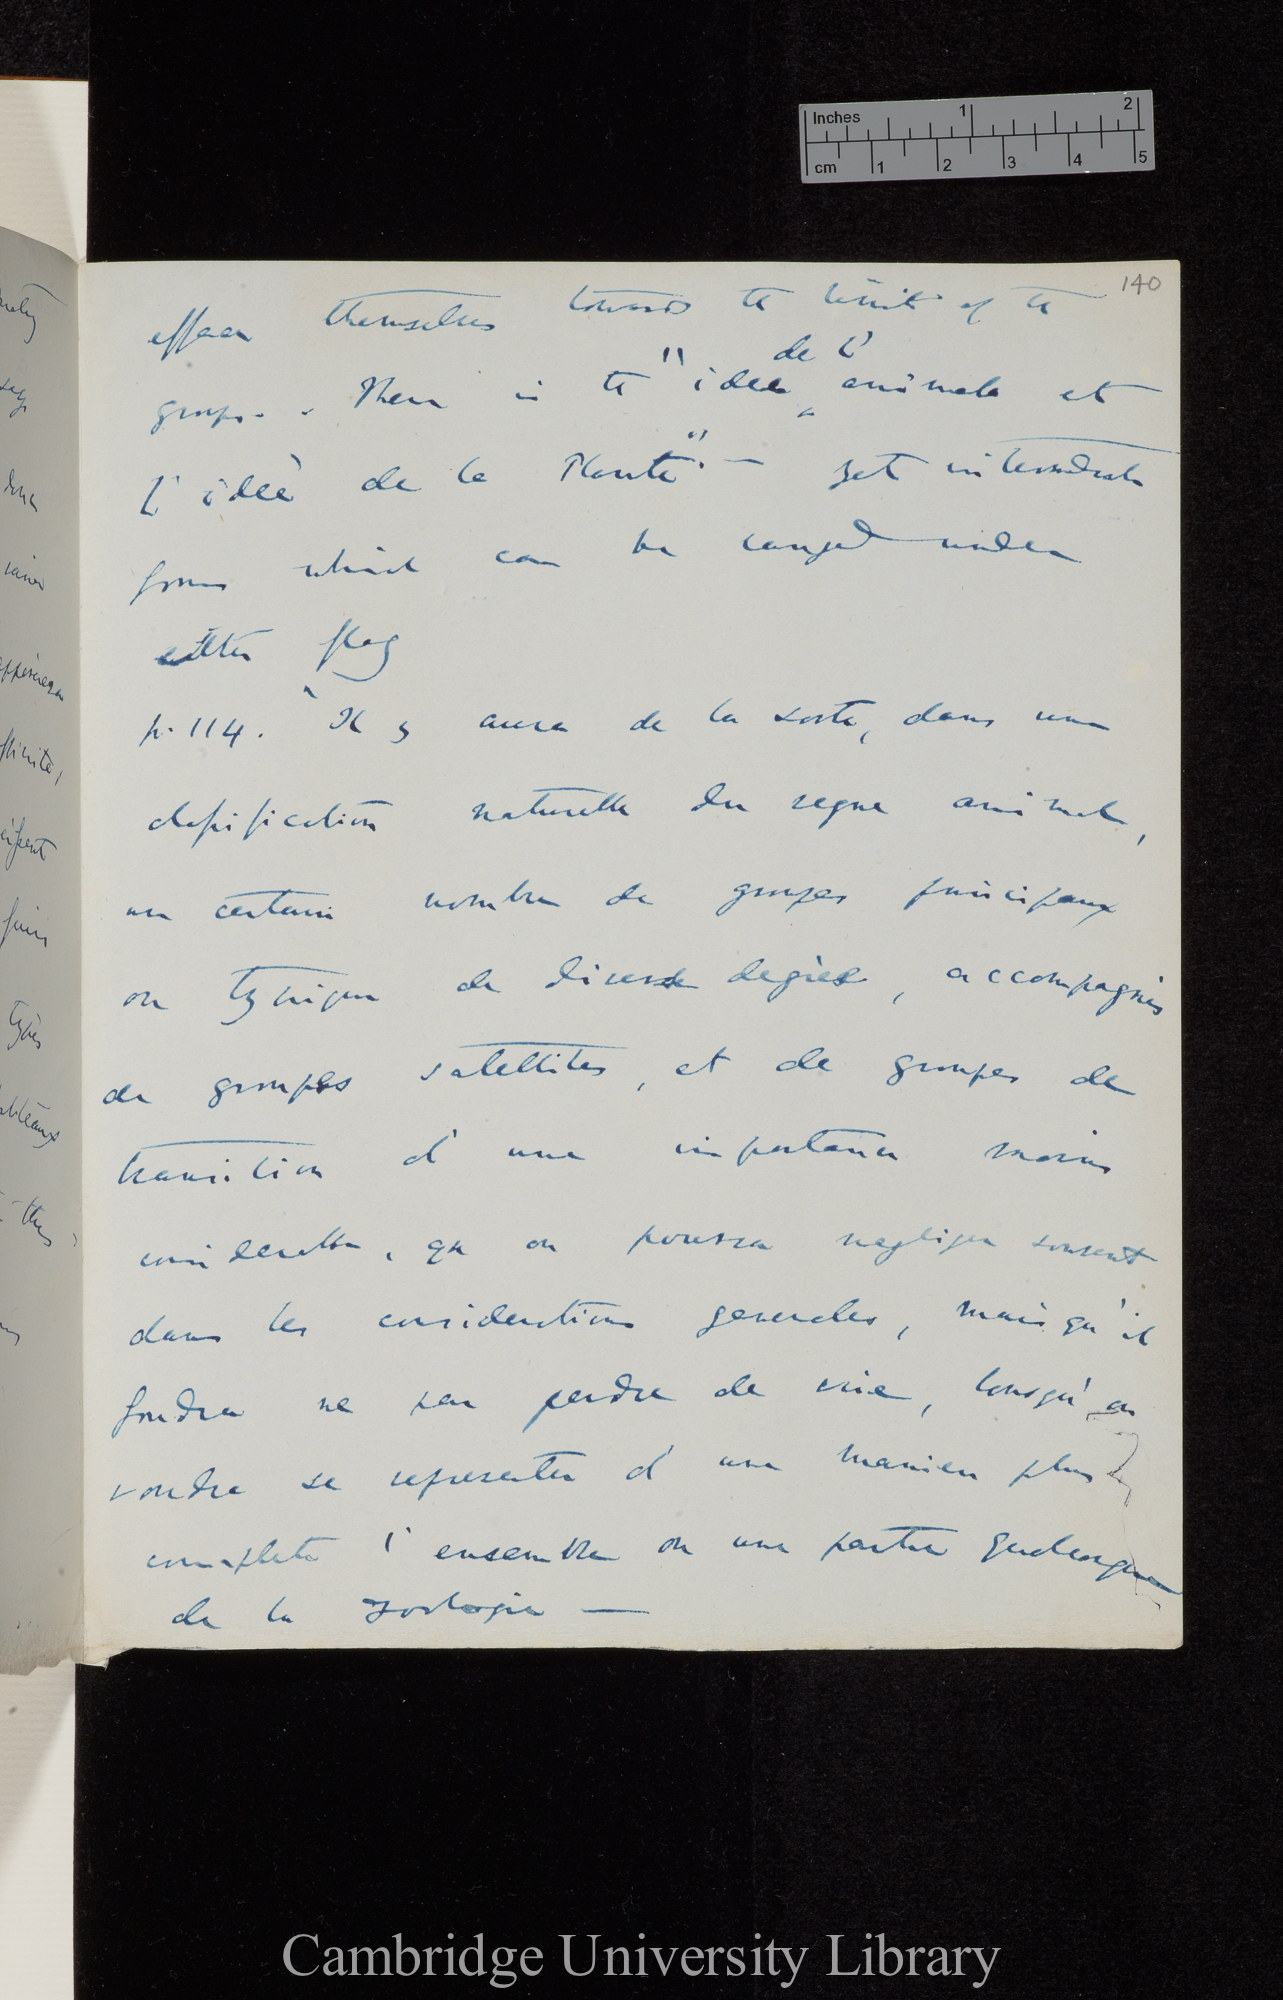 Inches 1 2
cm 1 2 3 4 5
140
efface themselves towards the limit of the
groups. . There is the "idée de l' animale et
l'idée de la Plante". — yet intermediate
forms which can be ranged under
either flag
p. 114. "Il y aura de la sorte, dans une
classification naturelle du regne animal,
un certain nombre de groupes principaux
ou typique de diverse degrès, accompagnés
de groupes satellites, et de groupes de
transition d'une importance moins
considerable, qu on pourra negliger souvent
dans les considerations generales, mais qu'il
foudra ne pas perdre de vue, lorsqu'on
voudra se representer d'une maniere plus
complete l'ensemble ou une partie quelconque
de la zoologie —
Cambridge University Library